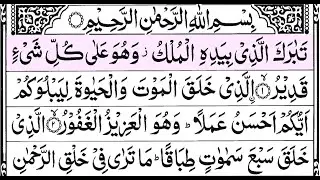 بِسْمِ اللهِ الرَّحْمٰنِ الرَّحِيْمِ
تَبٰرَكَ الَّذِىْ بِيَدِهِ الْمُلْكُ ز وَهُوَ عَلٰى كُلِّ شَىْءٍ
قَدِيْرُ ۝١ۙ الَّذِىْ خَلَقَ الْمَوْتَ وَالْحَيٰوةَ لِيَبْلُوَكُمْ
اَيُّكُمْ اَحْسَنُ عَمَلًا ؕ وَهُوَ الْعَزِيْزُ الْغَفُوْرُ ۝٢ۙ الَّذِىْ
خَلَقَ سَبْعَ سَمٰوٰتٍ طِبَاقًا ؕ مَا تَرٰى فِىْ خَلْقِ الرَّحْمٰنِ